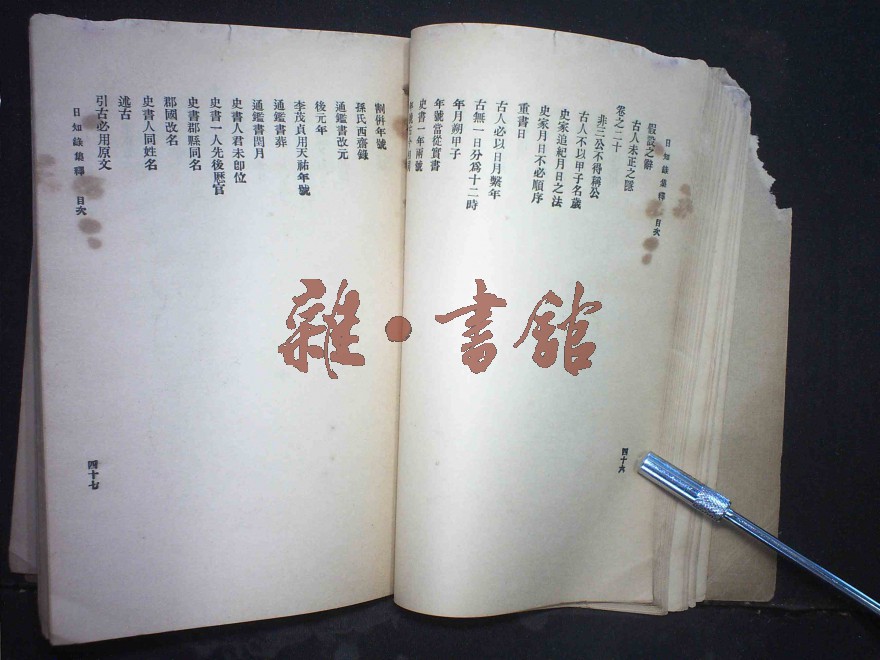 日知錄集釋 目次
四十六
假設之辭
古人未正之隱
卷之二十
非三公不得稱公
古人不以甲子名歲
史家追紀月日之法
史家月日不必順序
重書日
古人必以日月繫年
古無一日分爲十二時
年月朔甲子
年號當從實書
史書一年兩號
割併年號
孫氏西齋錄
通鑑書改元
後元年
李茂貞用天祐年號
通鑑書葬
通鑑書閏月
史書人君未卽位
史書一人先後歷官
史書郡縣同名
郡國改名
史書人同姓名
述古
引古必用原文
日知錄集釋 目次
四十七
雜·書館